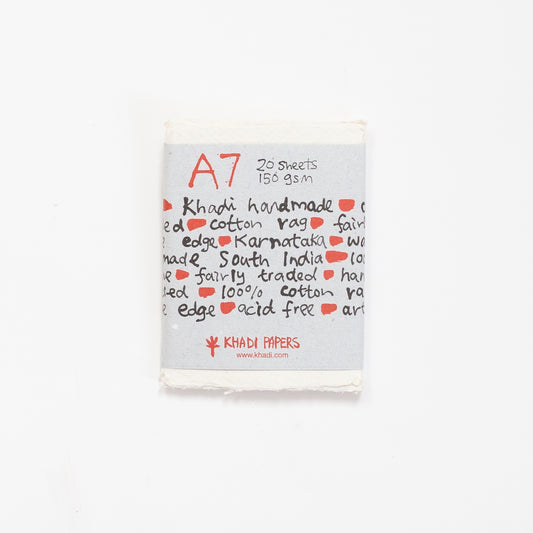 A7 20 sheets
150 gsm
Khadi handmade
cotton rag fair
edge Karnataka
made South India
fairly traded han
100% cotton ra
edge acid free art
KHADI PAPERS
www.khadi.com